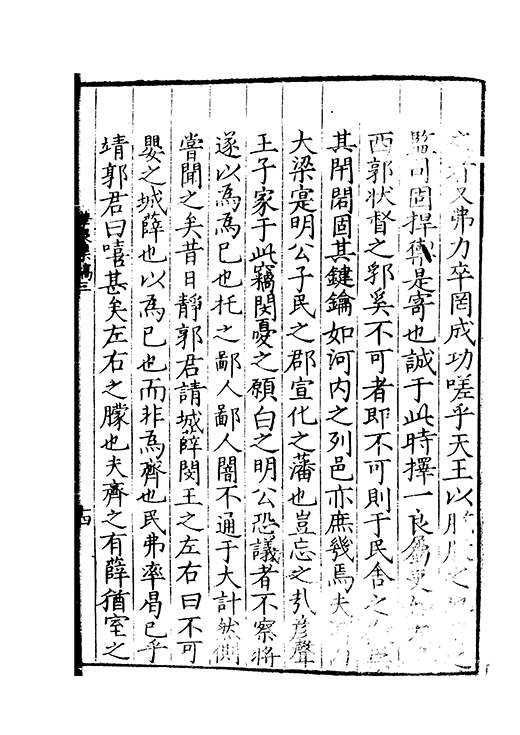 又弗力卒罔成功嗟乎天王以股肱之
監司固捍禦是寄也誠于此時擇一良屬更
西郭狀督之郭奚不可者即不可則于民舍之
其閈閎固其鍵鑰如河内之列邑亦庶幾焉夫
大梁寔明公子民之郡宣化之藩也豈忘之扎彦聲
王子家于此竊閔憂之願白之明公恐議者不察將
遂以爲爲已也托之鄙人鄙人闇不通于大計然側
嘗聞之矣昔日靜郭君請城薛閔王之左右曰不可
嬰之城薛也以爲已也而非爲齊也民弗率曷已乎
靖郭君曰嘻甚矣左右之矇也夫齊之有薛猶室之
十四